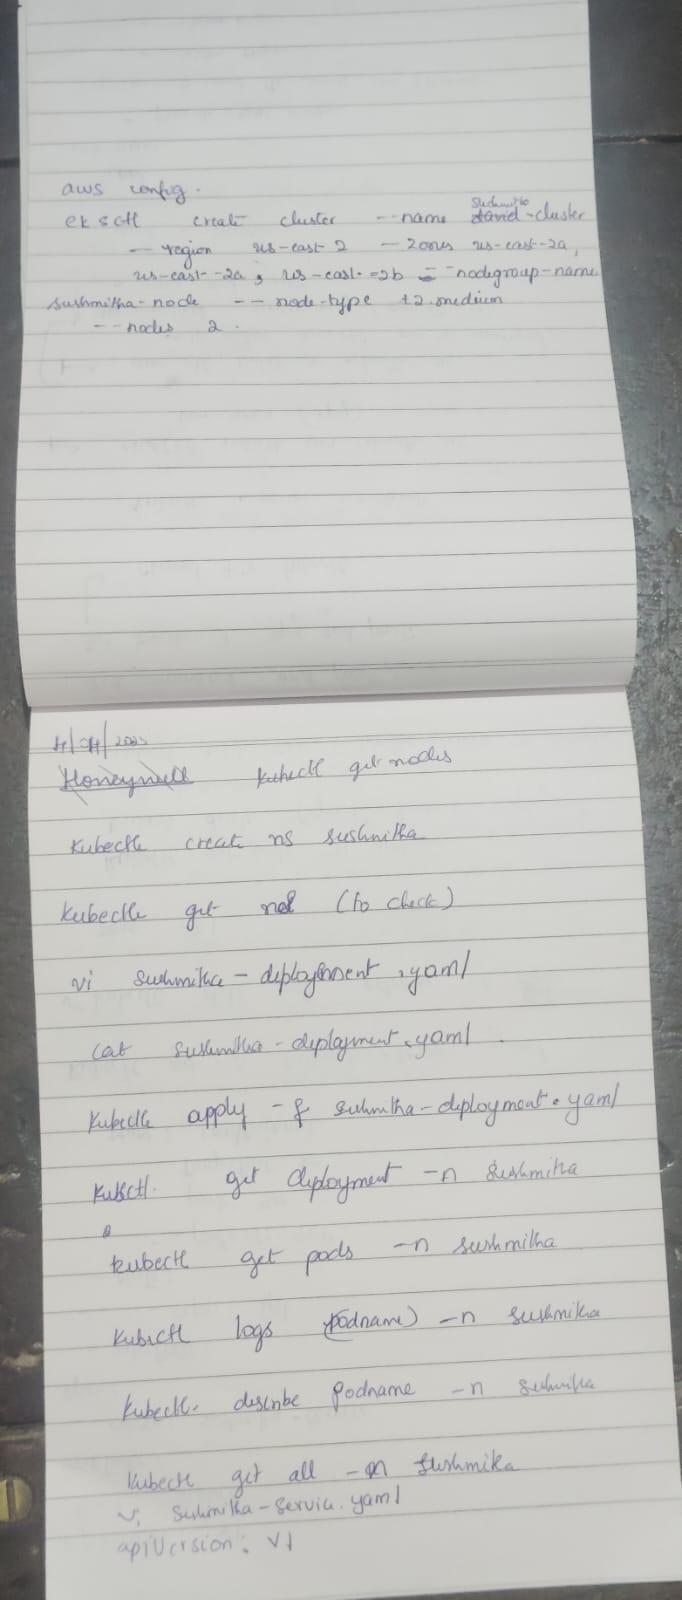 aws config.
eksctl create cluster --name sushmitha-cluster
-- region us-east-2 -- zones us-east-2a,
us-east-2a, us-east-2b --nodegroup-name
sushmitha-node -- node-type t2.medium
-- nodes 2.
Honeywell kubectl get nodes
kubectl create ns sushmitha
kubectl get (to check)
vi sushmitha-deployment.yaml
cat sushmitha-deployment.yaml.
kubectl apply -f sushmitha-deployment.yaml
kubectl. get deployment -n sushmitha
kubectl get pods -n sushmitha
kubectl logs (podname) -n sushmitha
kubectl. describe podname -n sushmitha
kubectl get all -n sushmitha
vi sushmitha-service.yaml
apiVersion: v1